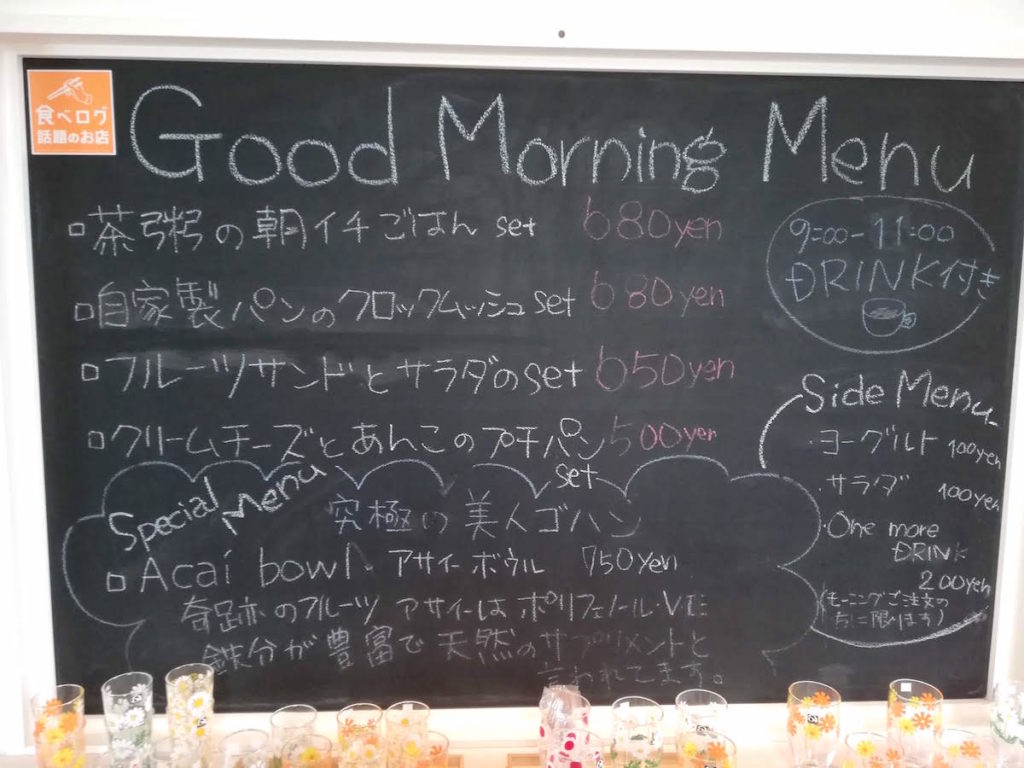 食べログ
話題のお店
Good Morning Menu
茶粥の朝イチごはん set 680yen
自家製パンのクロックムッシュ set 680yen
フルーツサンドとサラダの set 650yen
クリームチーズとあんこのプチパン 500yen
set
9:00-11:00
DRINK付き
Side Menu
・ヨーグルト 100yen
・サラダ 100yen
・One more
DRINK
200yen
(モーニングご注文の
方に限ります)
Special
Menu
究極の美人ゴハン
Acaí bowl アサイーボウル 750yen
奇跡のフルーツ アサイーはポリフェノール・V.E
鉄分が豊富で天然のサプリメントと
言われてます。